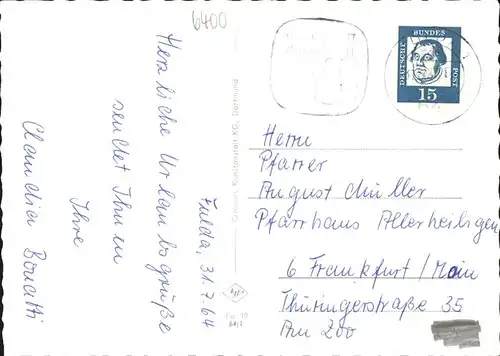 6400
Fulda, 31.7.64
Herzliche Urlaubsgrüße
sendet Ihnen
Ihre
Claudia Bonatti
Kunstanstalt KG., Dortmund
DEUTSCHE BUNDES POST
15
Herrn
Pfarrer
August Müller
Pfarrhaus Allerheiligen
6 Frankfurt/Main
Thüringerstraße 35
Am Zoo